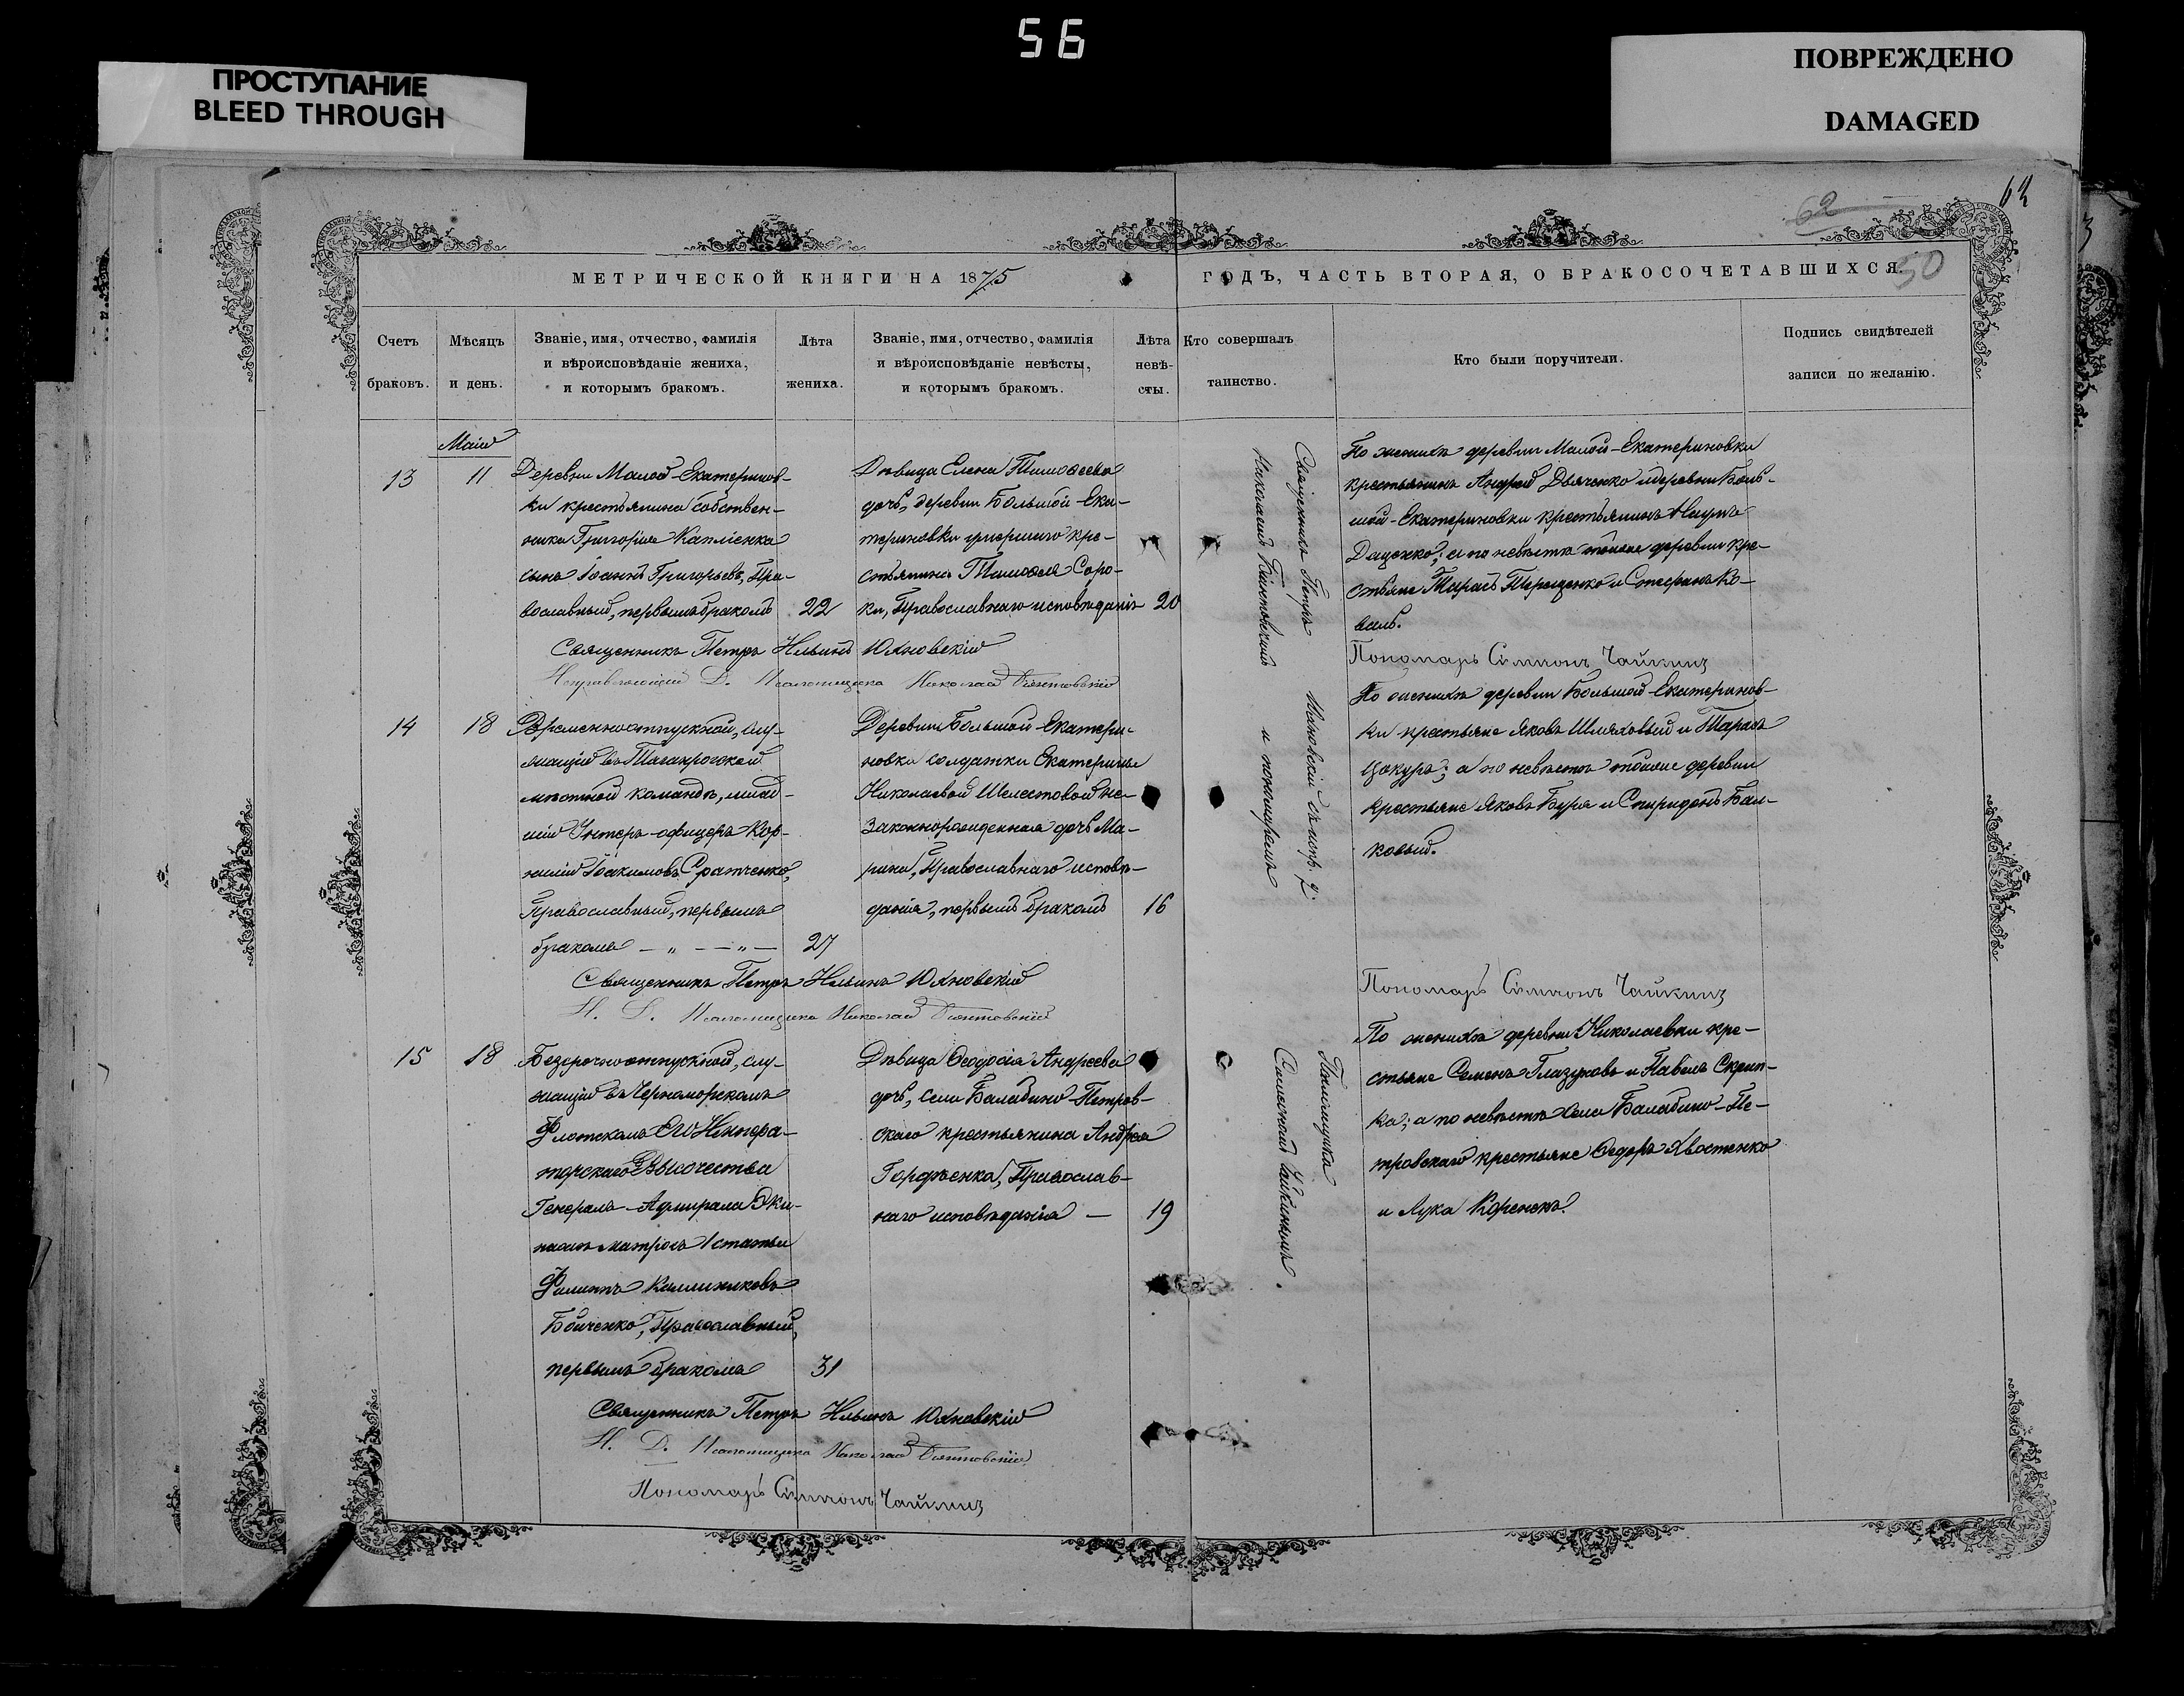 56
ПРОСТУПАНИЕ
BLEED THROUGH
ПОВРЕЖДЕНО
DAMAGED
62
62
50
МЕТРИЧЕСКОЙ КНИГИ НА 1875
ГОДЪ, ЧАСТЬ ВТОРАЯ, О БРАКОСОЧЕТАВШИХСЯ.
Счетъ браковъ.
Мѣсяцъ и день.
Званіе, имя, отчество, фамилія
и вѣроисповѣданіе жениха,
и которымъ бракомъ.
Лѣта
жениха.
Званіе, имя, отчество, фамилія
и вѣроисповѣданіе невѣсты,
и которымъ бракомъ.
Лѣта
невѣ-
сты.
Кто совершалъ
таинство.
Кто были поручители.
Подпись свидѣтелей
записи по желанію.
Маій
13
11
Деревни Малой-Екатеринов-
ки крестьянина собствен-
ника Григорія Капліенка
сынъ Іоаннъ Григорьевъ, Пра-
вославный, первымъ бракомъ
22
Дѣвица Елена Тимоѳеева
дочь, деревни Большой-Ека-
териновки умершаго кре-
стьянина Тимоѳея Соро-
ки, Православнаго исповѣданія
20
Священникъ Петръ Ильинъ Юхновскій
Исправляющій Д. Псаломщика Николай
По женихѣ деревни Малой-Екатериновки
крестьянинъ Андрей Дьяченко и деревни Боль-
шой-Екатериновки крестьянинъ Наумъ
Даценко; а по невѣстѣ тойже деревни кре-
стьяне Тарасъ Терещенко и Стефанъ Ко-
валь.
Пономарь Симеонъ Чайкинъ
14
18
Временноотпускной, слу-
жащій въ Таганрогской
мѣстной командѣ, млад-
шій Унтеръ-офицеръ Кор-
нилій Іоакимовъ
Православный, первымъ
бракомъ — „ — — „ —
27
Деревни Большой-Екатери-
новки солдатки Екатерины
Николаевой Шелестовой не-
законнорожденная дочь Ма-
рина, Православнаго исповѣ-
данія, первымъ бракомъ
16
Священникъ Петръ Ильинъ Юхновскій
И. Д. Псаломщика Николай
По женихѣ деревни Большой-Екатеринов-
ки крестьяне Яковъ Шляховый и Тарасъ
Цокуръ; а по невѣстѣ тойже деревни
крестьяне Яковъ Буря и Спиридонъ Бал-
ковый.
Пономарь Симеонъ Чайкинъ
15
18
Безсрочноотпускной, слу-
жащій въ Черноморскомъ
Флотскомъ Его Импера-
торскаго Высочества
Генералъ-Адмирала Эки-
пажѣ матросъ 1 статьи
Филиппъ Калинниковъ
Бойченко, Православный,
первымъ бракомъ
31
Дѣвица Ѳеодосія Андреева
дочь, села Балабино-Петров-
скаго крестьянина Андрея
Гордѣенка, Православ-
наго исповѣданія —
19
Священникъ Петръ Ильинъ Юхновскій
И. Д. Псаломщика Николай
Пономарь Симеонъ Чайкинъ
По женихѣ деревни Николаевки кре-
стьяне Семенъ Глазуновъ и Павелъ Скрип-
ка; а по невѣстѣ села Балабино-Пе-
тровскаго крестьяне Ѳедоръ Хвостенко
и Лука Коренекъ.
Священникъ Петръ Юхновскій съ испр. д.
Псаломщика
Николаемъ и пономаремъ
Симеономъ Чайкинымъ.